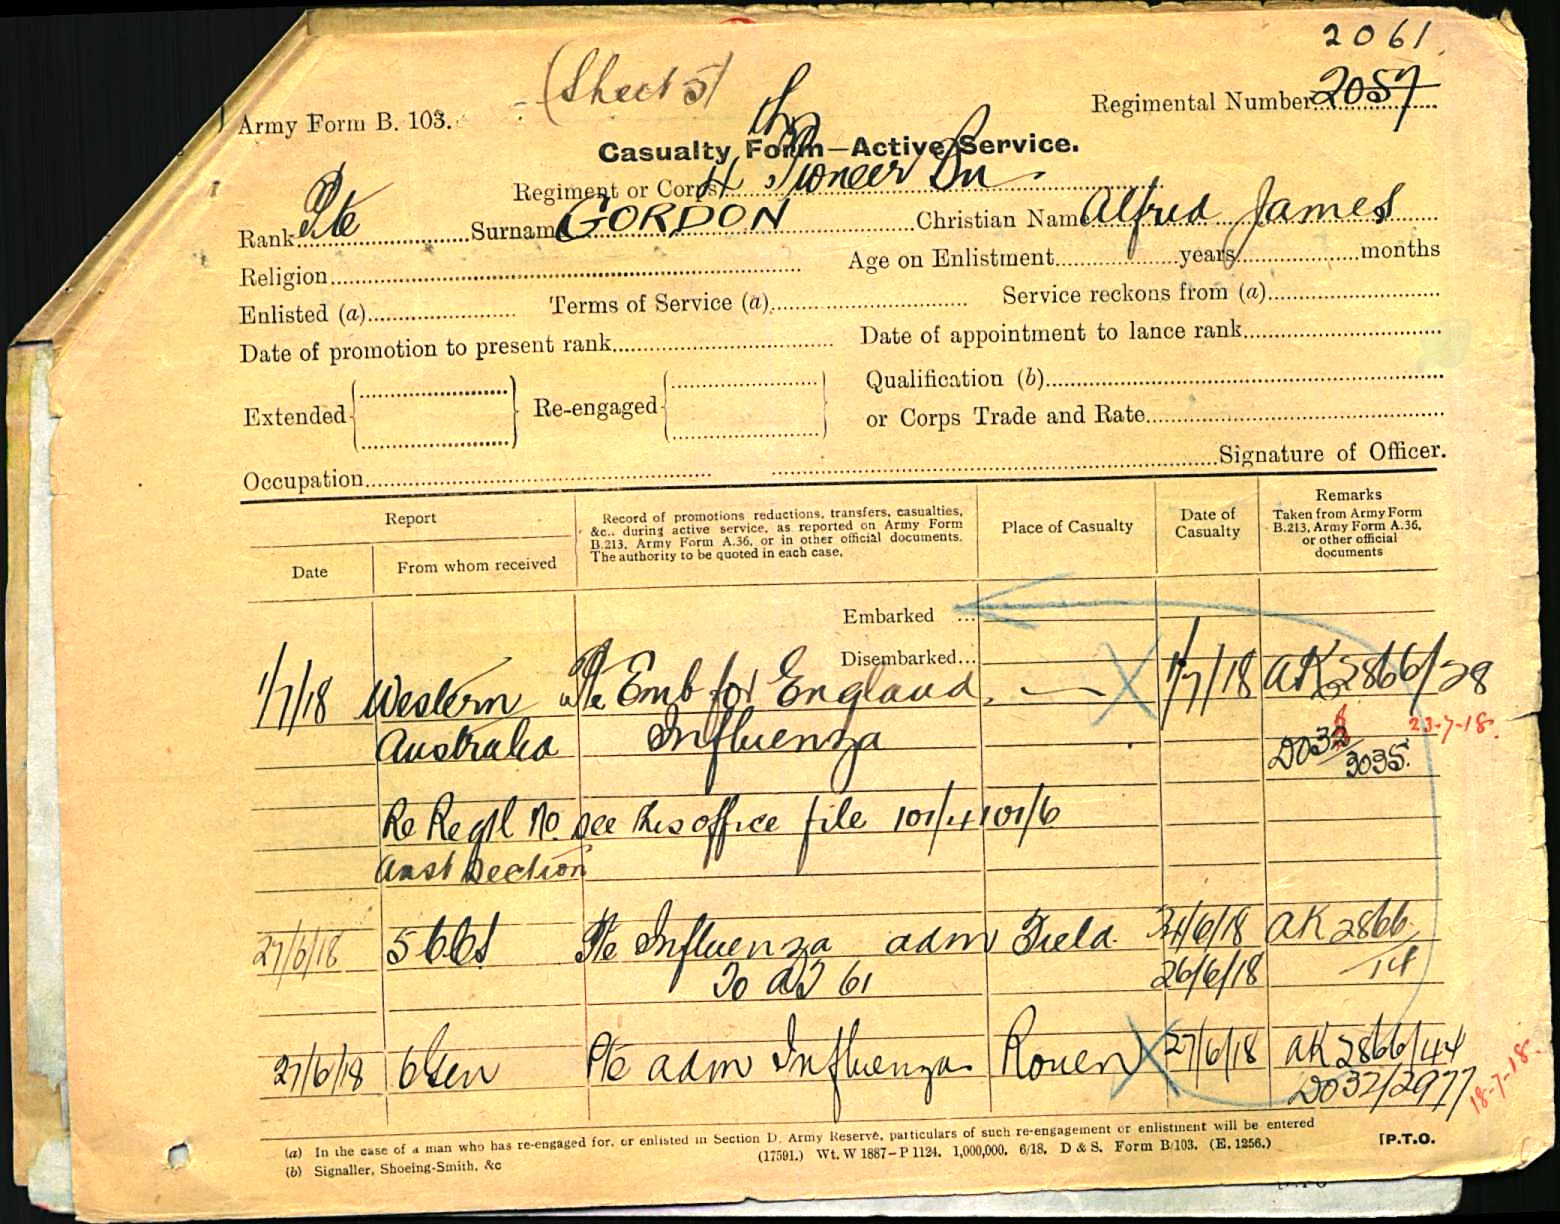 2061
(Sheet 5)
Army Form B. 103.
Regimental Number 2057
Casualty Form—Active Service.
Regiment or Corps 4th Pioneer Bn.
Rank Pte Surname GORDON Christian Name Alfred James
Religion
Age on Enlistment years months
Enlisted (a) Terms of Service (a) Service reckons from (a)
Date of promotion to present rank Date of appointment to lance rank
Extended Re-engaged Qualification (b)
or Corps Trade and Rate
Occupation Signature of Officer.
Report
Date
From whom received
Record of promotions reductions, transfers, casualties,
&c., during active service, as reported on Army Form
B.213, Army Form A.36, or in other official documents.
The authority to be quoted in each case.
Place of Casualty
Date of
Casualty
Remarks
Taken from Army Form
B.213, Army Form A.36,
or other official
documents
Embarked ...
Disembarked...
1/7/18 Western Pte Emb for England. 1/7/18 AK2866/28
Australia Influenza DO33/3035. 23-7-18.
Re Regtl No. see this office file 101/4101/6
Aust Section
27/6/18 5 CCS Pte Influenza adm Field 24/6/18 AK 2866
To AT 61 26/6/18 /14
27/6/18 6 Gen Pte adm Influenza. Rouen 27/6/18 AK2866/44
DO32/2977 18-7-18.
(a) In the case of a man who has re-engaged for, or enlisted in Section D, Army Reserve, particulars of such re-engagement or enlistment will be entered
(b) Signaller, Shoeing-Smith, &c
(17591.) Wt. W 1887—P 1124. 1,000,000. 6/18. D & S. Form B/103. (E. 1256.)
[P.T.O.